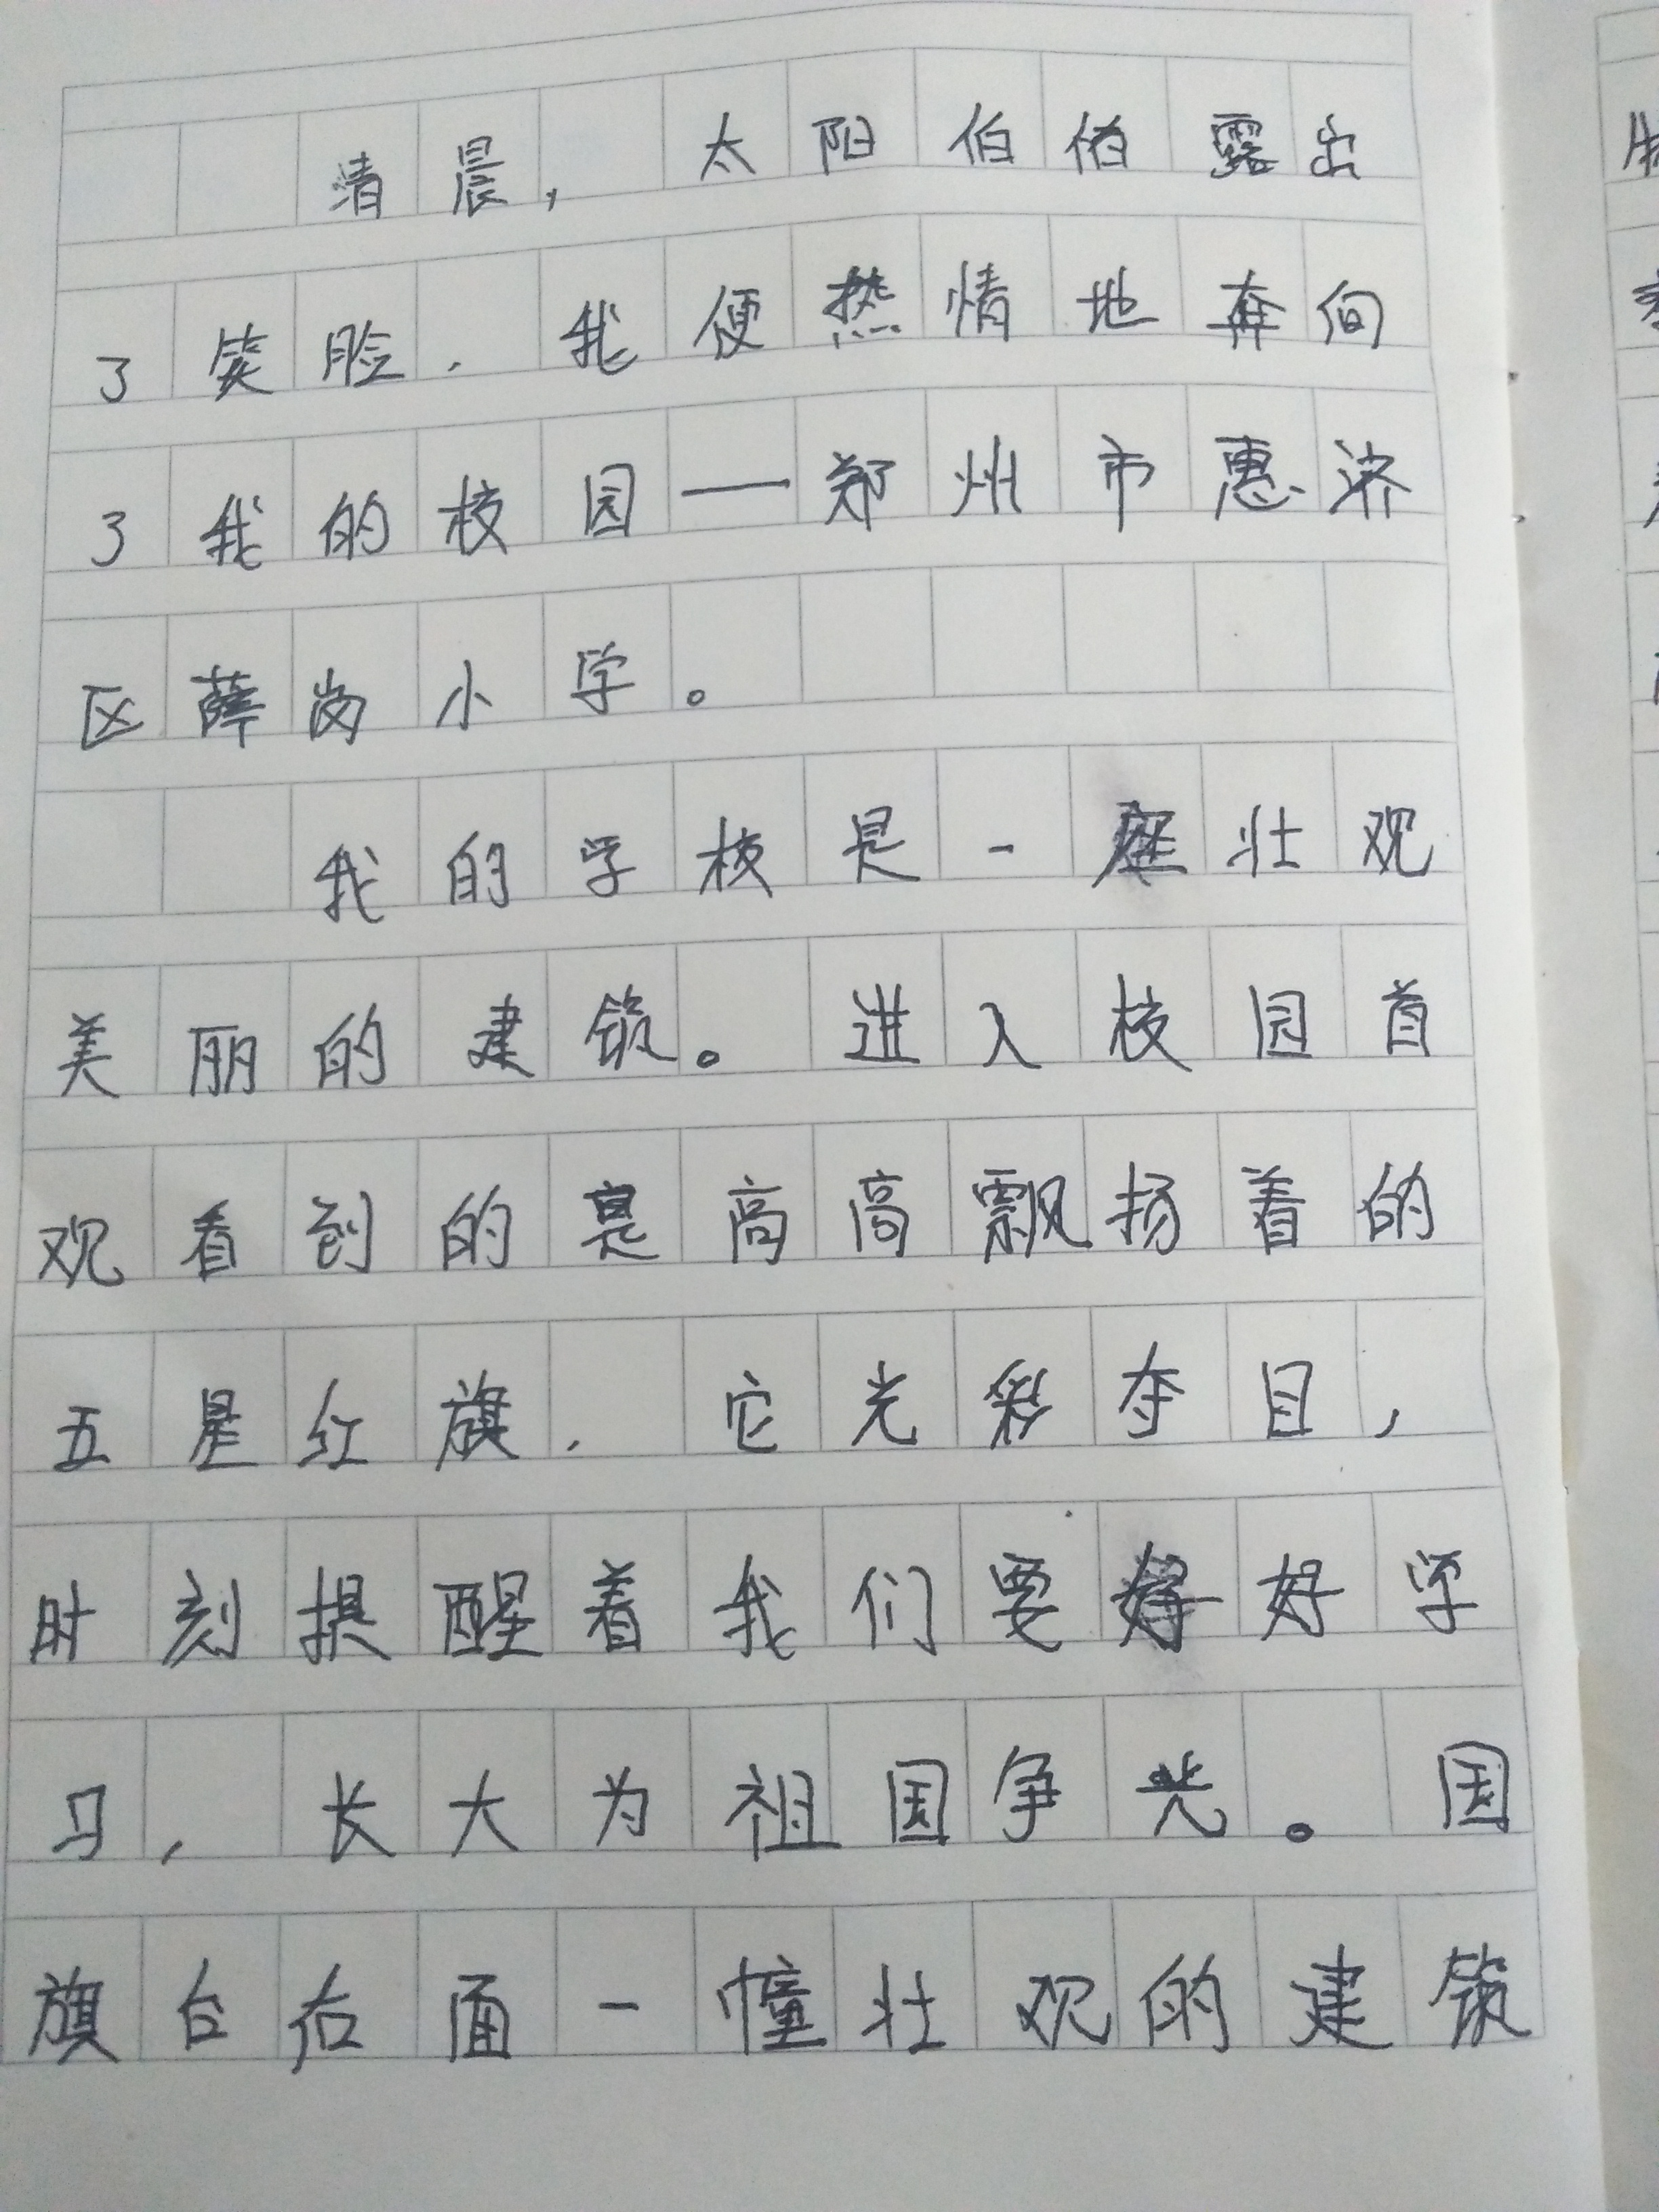 清晨,太阳伯伯露出
了笑脸.我便热情地奔向
了我的校园—郑州市惠济
区薛岗小学。
我的学校是一座壮观
美丽的建筑。进入校园首
观看到的是高高飘扬着的
五是红旗.它光彩夺目,
时刻提醒着我们要好好学
习,长大为祖国争光。国
旗台右面一幢壮观的建筑